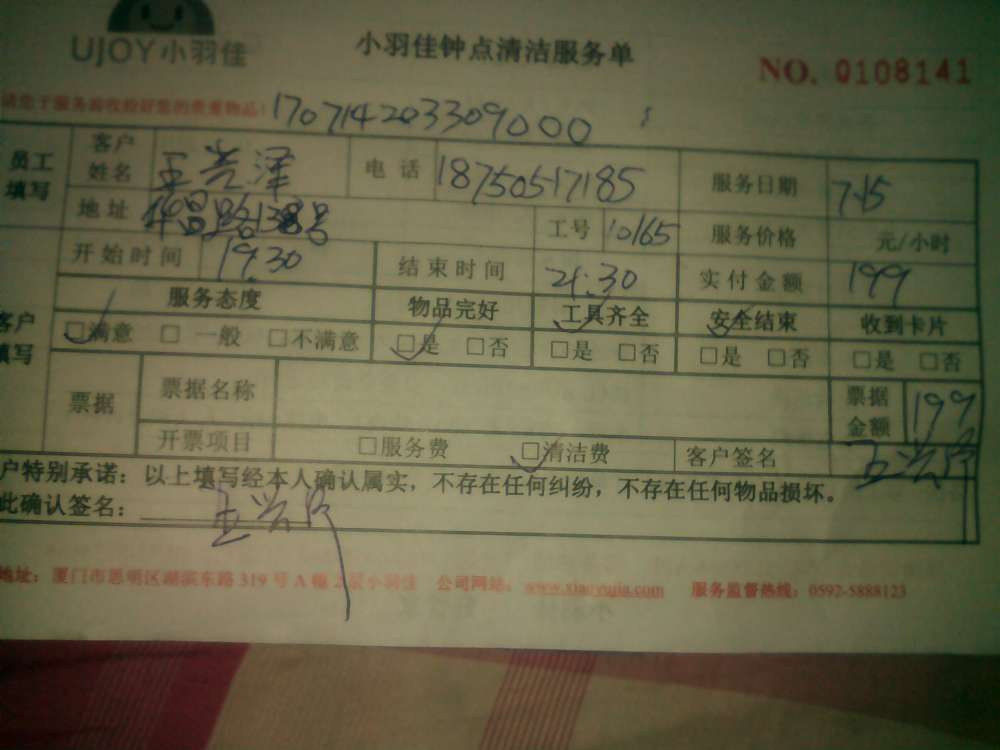 UJOY小羽佳
小羽佳钟点清洁服务单
NO. 0108141
请您于服务前收检好您的贵重物品!
170714203309000
员工填写 客户姓名 王兴泽 电话 18750517185 服务日期 7.15
地址 138号 工号 10165 服务价格 元/小时
开始时间 19.30 结束时间 21:30 实付金额 199
客户填写 服务态度 物品完好 工具齐全 安全结束 收到卡片
□满意 □一般 □不满意 □是 □否 □是 □否 □是 □否 □是 □否
票据 票据名称 票据金额 199
开票项目 □服务费 □清洁费 客户签名 王兴泽
户特别承诺：以上填写经本人确认属实，不存在任何纠纷，不存在任何物品损坏。
此确认签名： 王兴泽
地址：厦门市思明区湖滨东路319号A幢2层小羽佳 公司网站：www.xiaoyujia.com 服务监督热线：0592-5888123